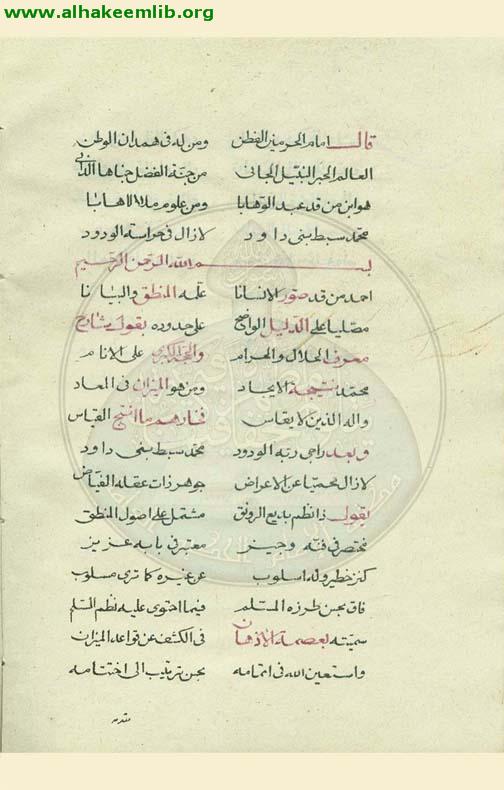 www.alhakeemlib.org
قال امام الحرمين الفطن ومن له في همدان الوطن
العالم الحبر النبيل الجاني من جنة الفضل جناها الداني
هو ابن من قد عبد الوهابا ومن علوم ملأ الاهابا
محمد سبط بني داود لازال في حراسة الودود
بسم الله الرحمن الرحيم
احمد من قد صور الانسانا علمه المنطق والبيانا
مصليا على الدليل الواضح على حدوده بقول شارح
معرف الحلال والحرام والحجة الكبرى على الانام
محمد نتيجة الايجاد ومن هو الميزان في المعاد
واله الذين لا يقاس فخارهم ما انتج القياس
وبعد راجي ربه الودود محمد سبط بني داود
لازال محميا عن الاعراض جوهر ذات عقله الفياض
يقول ذا نظم بديع الرونق مشتمل على اصول المنطق
مختصر في فنه وجيز معتبر في بابه عزيز
كنز خطير وله اسلوب عن غيره كما ترى مسلوب
فاق بحسن طرزه المسلم فيما احتوى عليه نظم السلم
سميته بعصمة الاذهان في الكشف عن قواعد الميزان
واستعين الله في اتمامه بحسن ترتيب الى اختتامه
مقدمه